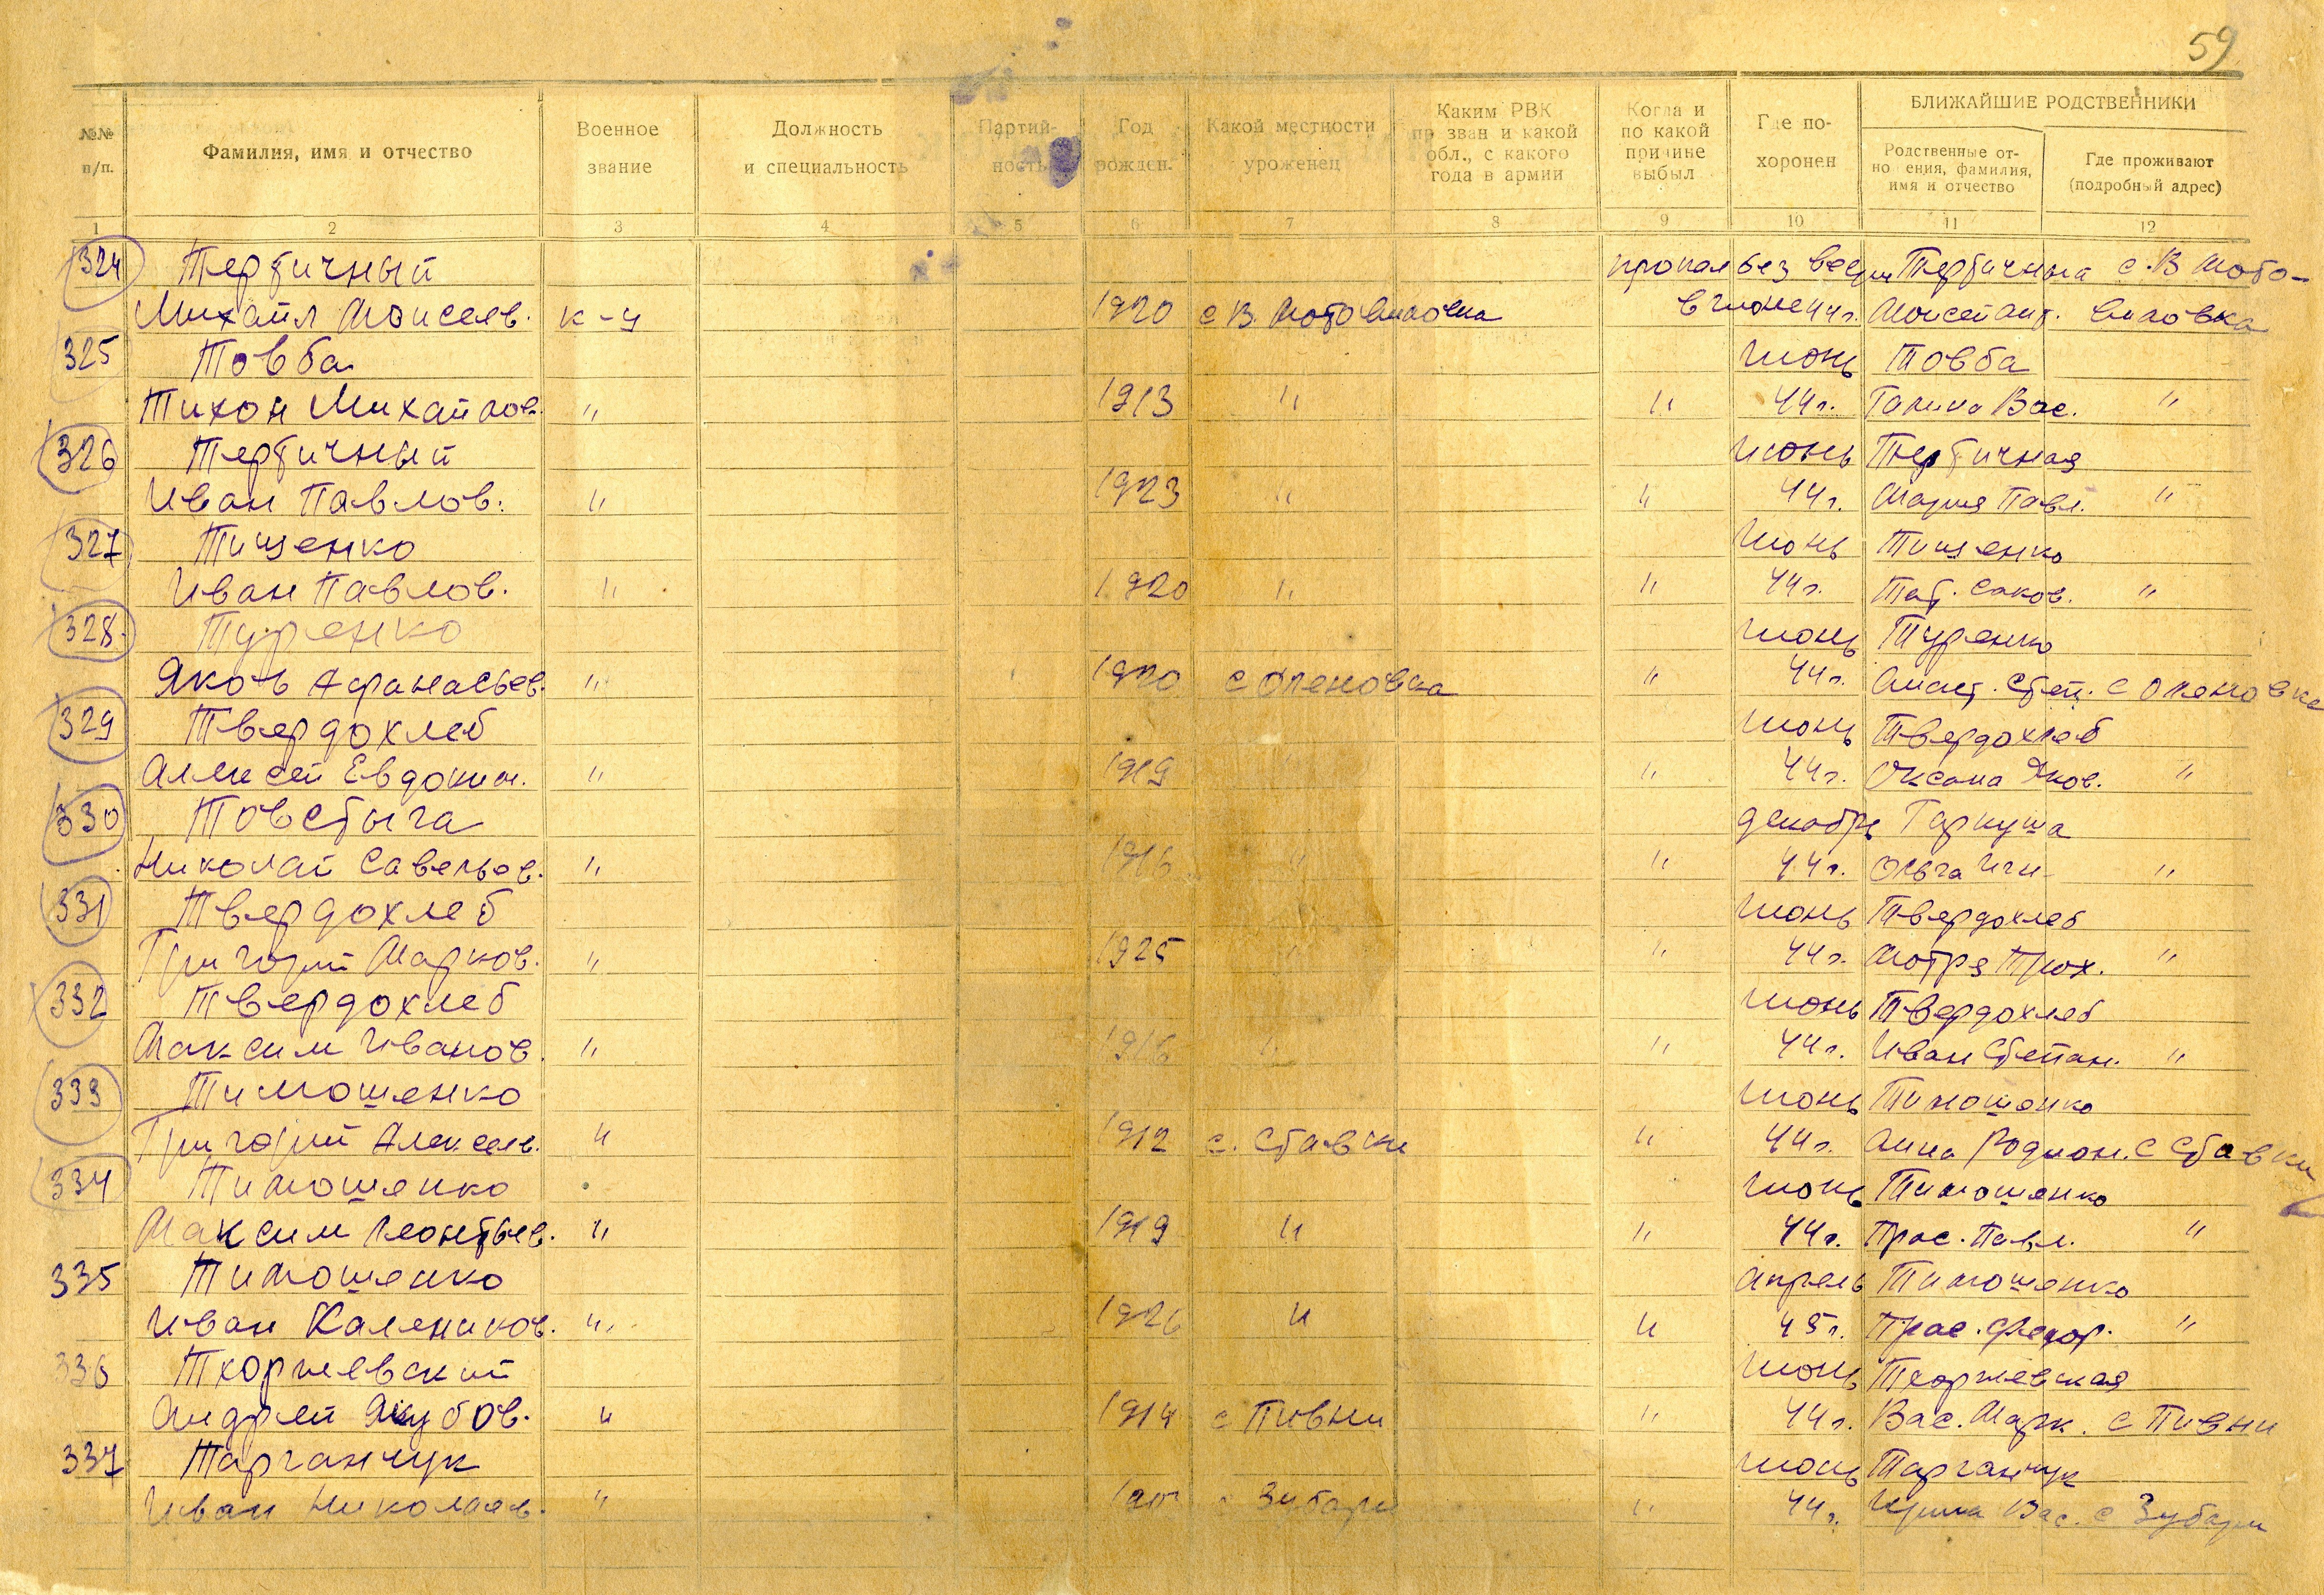 59
№№ п/п.
Фамилия, имя и отчество
Военное звание
Должность и специальность
Партий- ность
Год рожден.
Какой местности уроженец
Каким РВК при зван и какой обл., с какого года в армии
Когда и по какой причине выбыл
Где по- хоронен
БЛИЖАЙШИЕ РОДСТВЕННИКИ
Родственные от- но ения, фамилия, имя и отчество
Где проживают (подробный адрес)
1 2 3 4 5 6 7 8 9 10 11 12
324 Тертичный пропал без вести Тертичный с. В Мото-
Михаил Моисеев. к-ц 1920 с В. Мотовиловка в июне 44 г. Моисей Ант. виловка
325 Товба июнь Товба
Тихон Михайлов. " 1913 " " 44 г. Вас. "
326 Тертичный июнь Тертичная
Иван Павлов. " 1923 " " 44 г. Мария Павл. "
327 Тищенко июнь Тищенко
Иван Павлов. " 1920 " " 44 г. Тат. "
328 Туренко июнь Туренко
Яковь Афанасьев. " 1920 с Оленовка " 44 г. Степ. с Оленовка
329 Твердохлеб июнь Твердохлеб
Алексей Евдоким. " 1919 " " 44 г. Оксана Яков. "
330 Товстыга декабрь Гаркуша
Николай Савельев. " 1916 " " 44 г. Ольга Игн. "
331 Твердохлеб июнь Твердохлеб
Григорий Марков. " 1925 " " 44 г. Мотря Троx. "
332 Твердохлеб июнь Твердохлеб
Максим Иванов. " 1916 " " 44 г. Иван Степан. "
333 Тимошенко июнь Тимошенко
Григорий Алексеев. " 1912 с. Ставки " 44 г. Анна Родион. с Ставки
334 Тимошенко июнь Тимошенко
Максим Леонтьев. " 1919 " " 44 г. Прас. Павл. "
335 Тимошенко апрель Тимошенко
Иван Калеников. " 1926 " " 45 г. Прас. Федор. "
336 Тхоржевский июнь Тхоржевская
Андрей Якубов. " 1914 с Пивни " 44 г. Вас. Марк. с Пивни
337 Тарганчук июнь Тарганчук
Иван Николаев. " с Зубари " 44 г. Ирина Вас. с Зубари